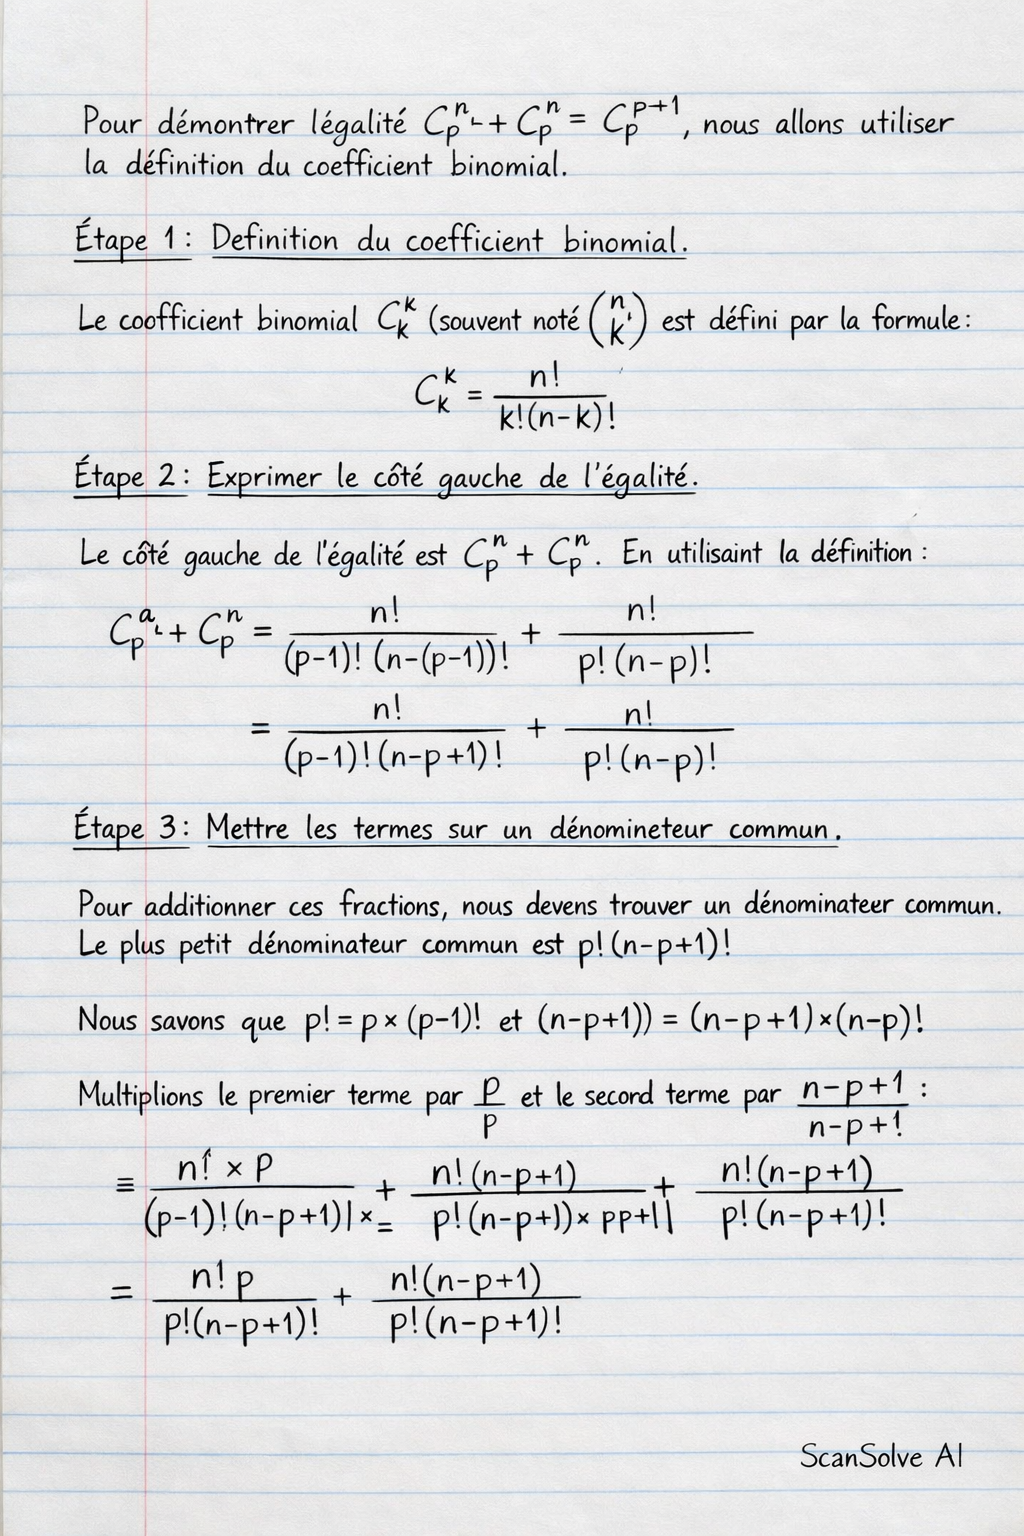 Pour démontrer légalité C_p^n ㄴ + C_p^n = C_p^{p+1}, nous allons utiliser
la définition du coefficient binomial.
Étape 1: Definition du coefficient binomial.
Le coofficient binomial C_k^k (souvent noté (n k') est défini par la formule:
C_k^k = n! / k!(n-k)!
Étape 2: Exprimer le côté gauche de l'égalité.
Le côté gauche de l'égalité est C_p^n + C_p^n. En utilisaint la définition :
C_p^a ㄴ + C_p^n = n! / (p-1)! (n-(p-1))! + n! / p! (n-p)!
= n! / (p-1)! (n-p+1)! + n! / p! (n-p)!
Étape 3: Mettre les termes sur un dénomineteur commun.
Pour additionner ces fractions, nous devens trouver un dénominateer commun.
Le plus petit dénominateur commun est p! (n-p+1)!
Nous savons que p! = p × (p-1)! et (n-p+1)) = (n-p+1)×(n-p)!
Multiplions le premier terme par p / p et le second terme par n-p+1 / n-p+! :
≡ n! × p / (p-1)! (n-p+1)| × = + n! (n-p+1) / p! (n-p+))× pp+|| + n! (n-p+1) / p! (n-p+1)!
= n! p / p!(n-p+1)! + n!(n-p+1) / p!(n-p+1)!
ScanSolve AI